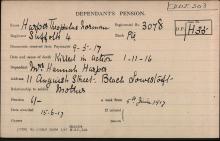 DEPENDANT'S PENSION.
Harper Truppilus Norman Regimental No. 3078
Regiment Suffolks 4 Rank Pte H 33
Documents received from Paymaster 9-5-17
Date and cause of death Killed in Action 1-11-16
Mrs Hannah Harper
11 August Street. Beach Lowestoft
Relationship to soldier Mother
Pension 6/- from 5th June 1917
15-6-17